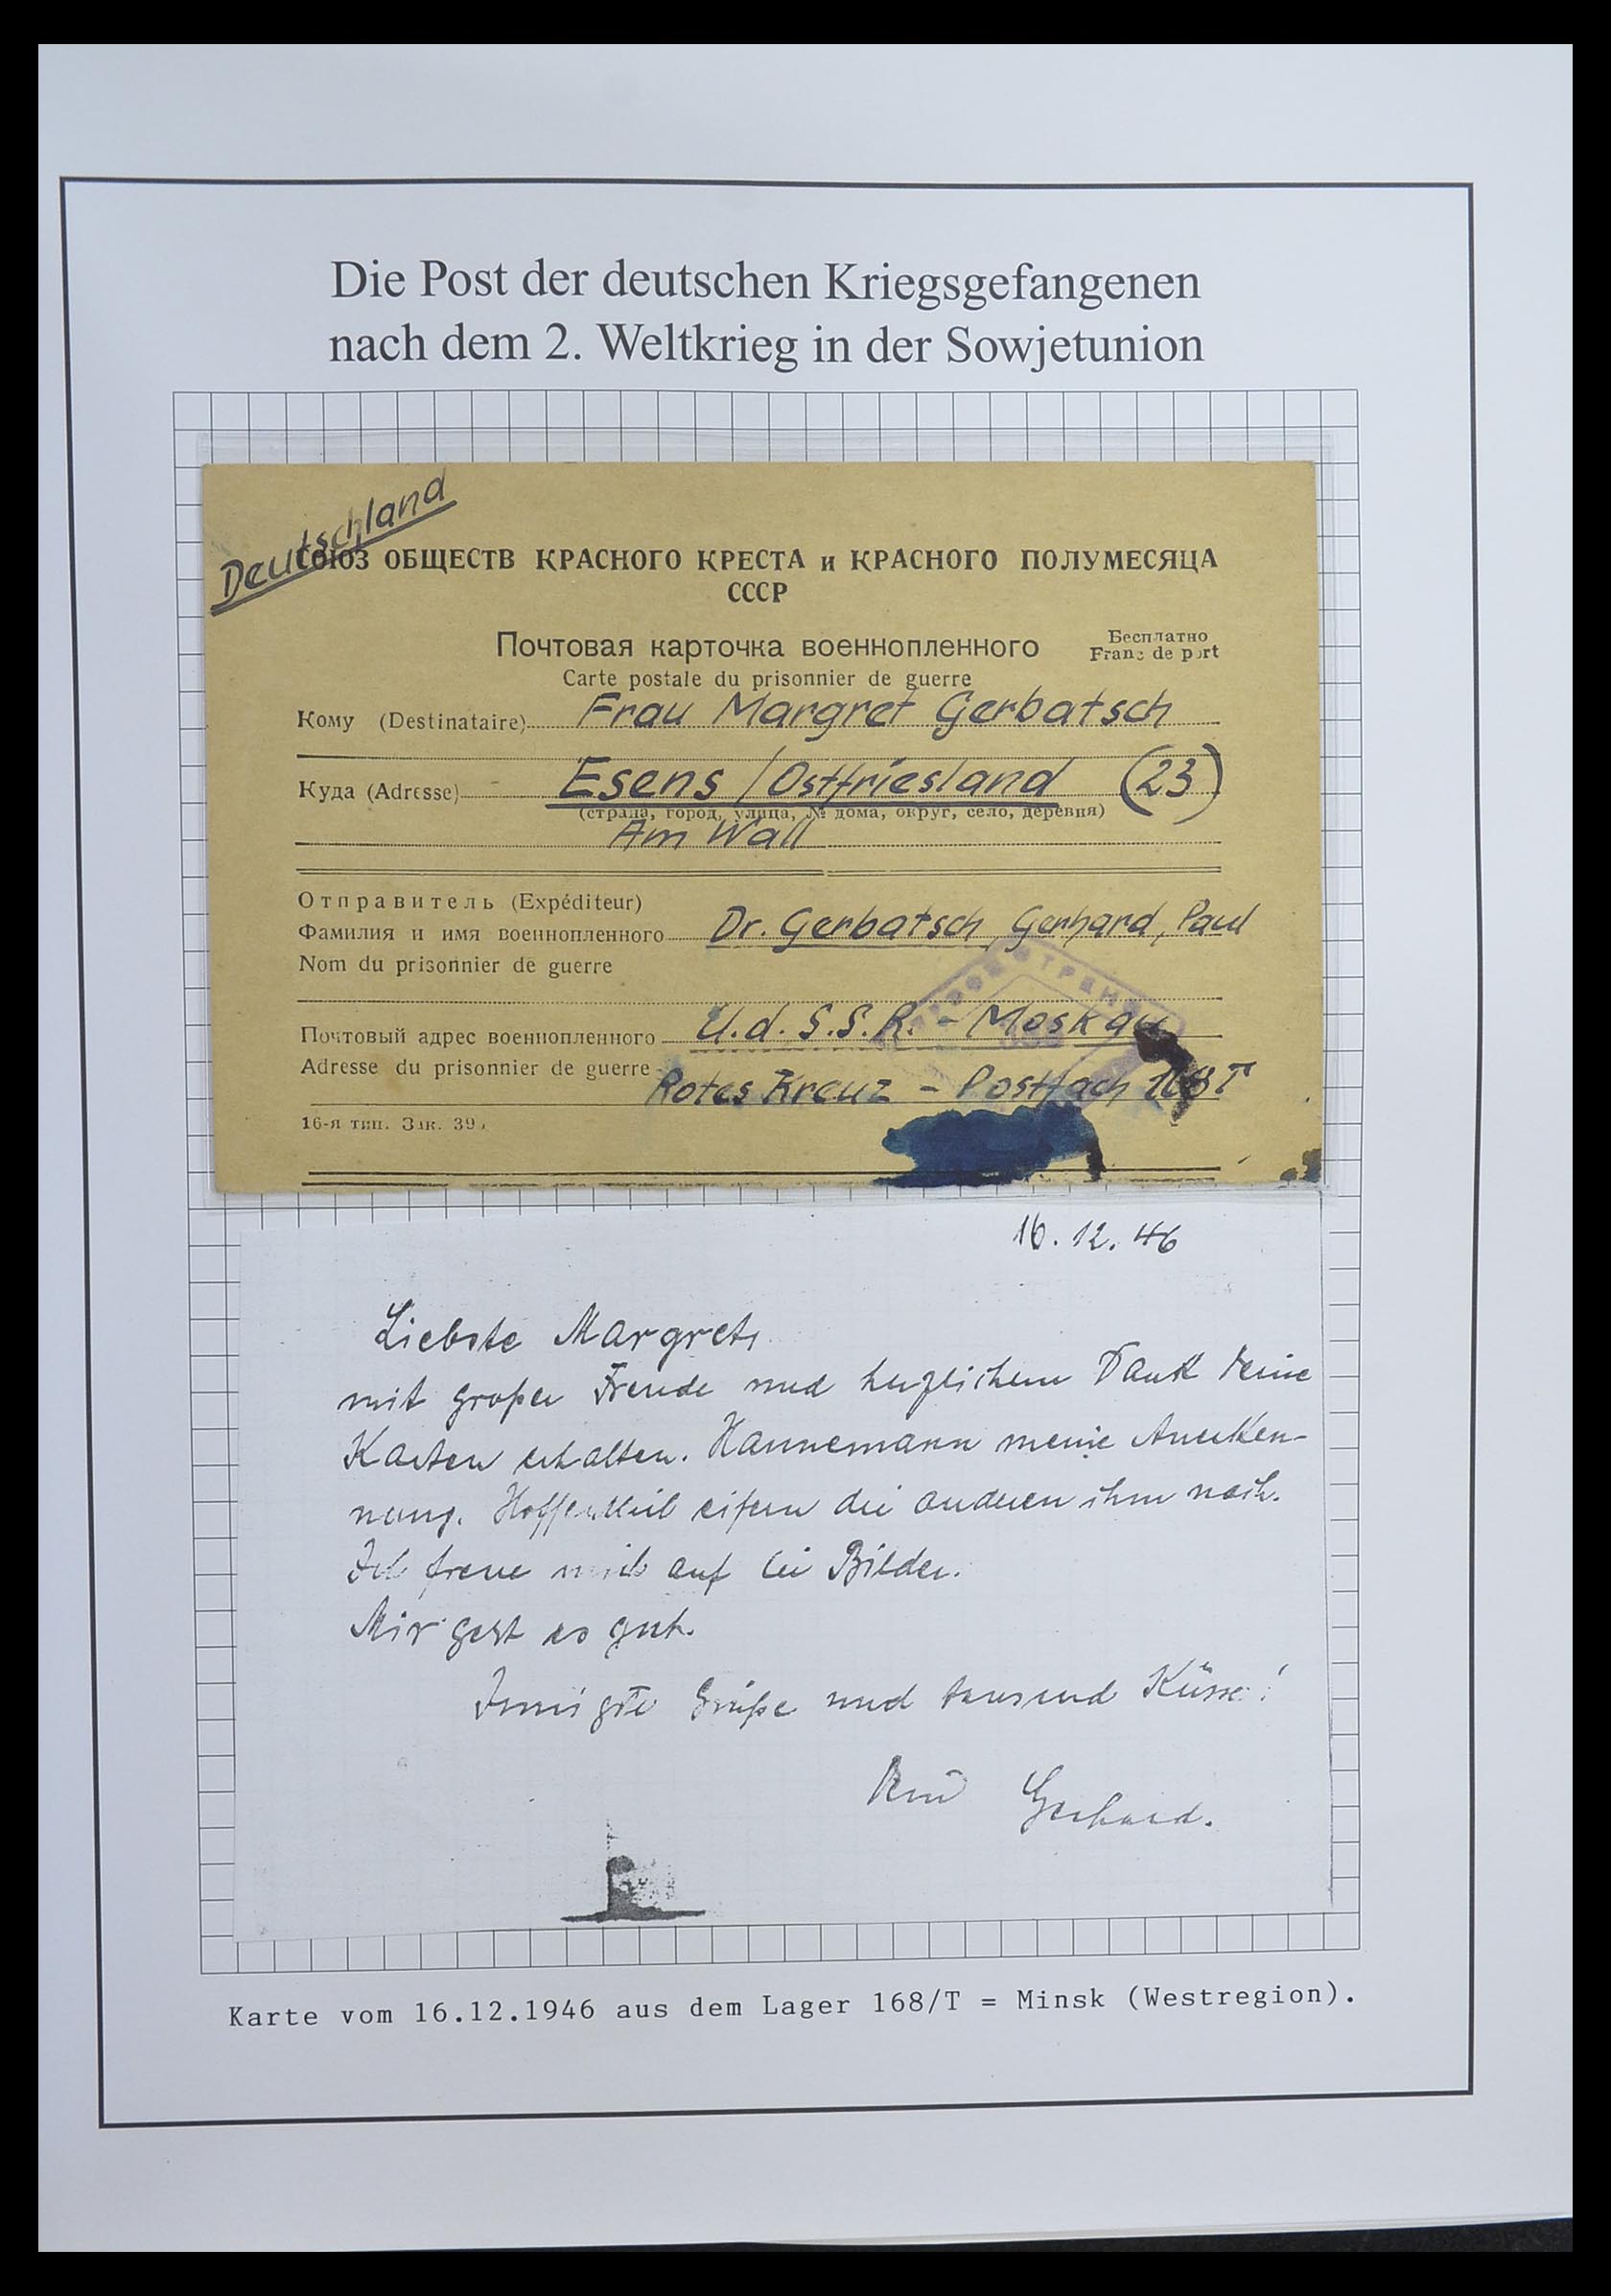 Die Post der deutschen Kriegsgefangenen
nach dem 2. Weltkrieg in der Sowjetunion
Deutschland
СОЮЗ ОБЩЕСТВ КРАСНОГО КРЕСТА и КРАСНОГО ПОЛУМЕСЯЦА
СССР
Почтовая карточка военнопленного
Бесплатно
Franc de port
Carte postale du prisonnier de guerre
Кому (Destinataire) Frau Margret Gerbatsch
Куда (Adresse) Esens / Ostfriesland (23)
(страна, город, улица, № дома, округ, село, деревня)
Am Wall
Отправитель (Expéditeur)
Фамилия и имя военнопленного Dr. Gerbatsch, Gerhard, Paul
Nom du prisonnier de guerre
Почтовый адрес военнопленного U.d.S.S.R. - Moskau
Adresse du prisonnier de guerre Rotes Kreuz - Postfach 168 T
16-я тип. Зак. 39
16.12.46
Liebste Margret,
mit großer Freude und herzlichem Dank Deine
Karten erhalten. Hannemann meine Anerken-
nung. Hoffentlich eifern die anderen ihm nach.
Ich freue mich auf die Bilder.
Mir geht es gut.
Innigste Grüße und tausend Küsse!
Dein Gerhard.
Karte vom 16.12.1946 aus dem Lager 168/T = Minsk (Westregion).